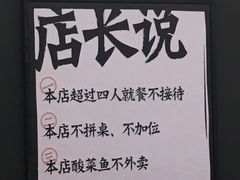 店长说
一 本店超过四人就餐不接待
二 本店不拼桌，不加位
三 本店酸菜鱼不外卖